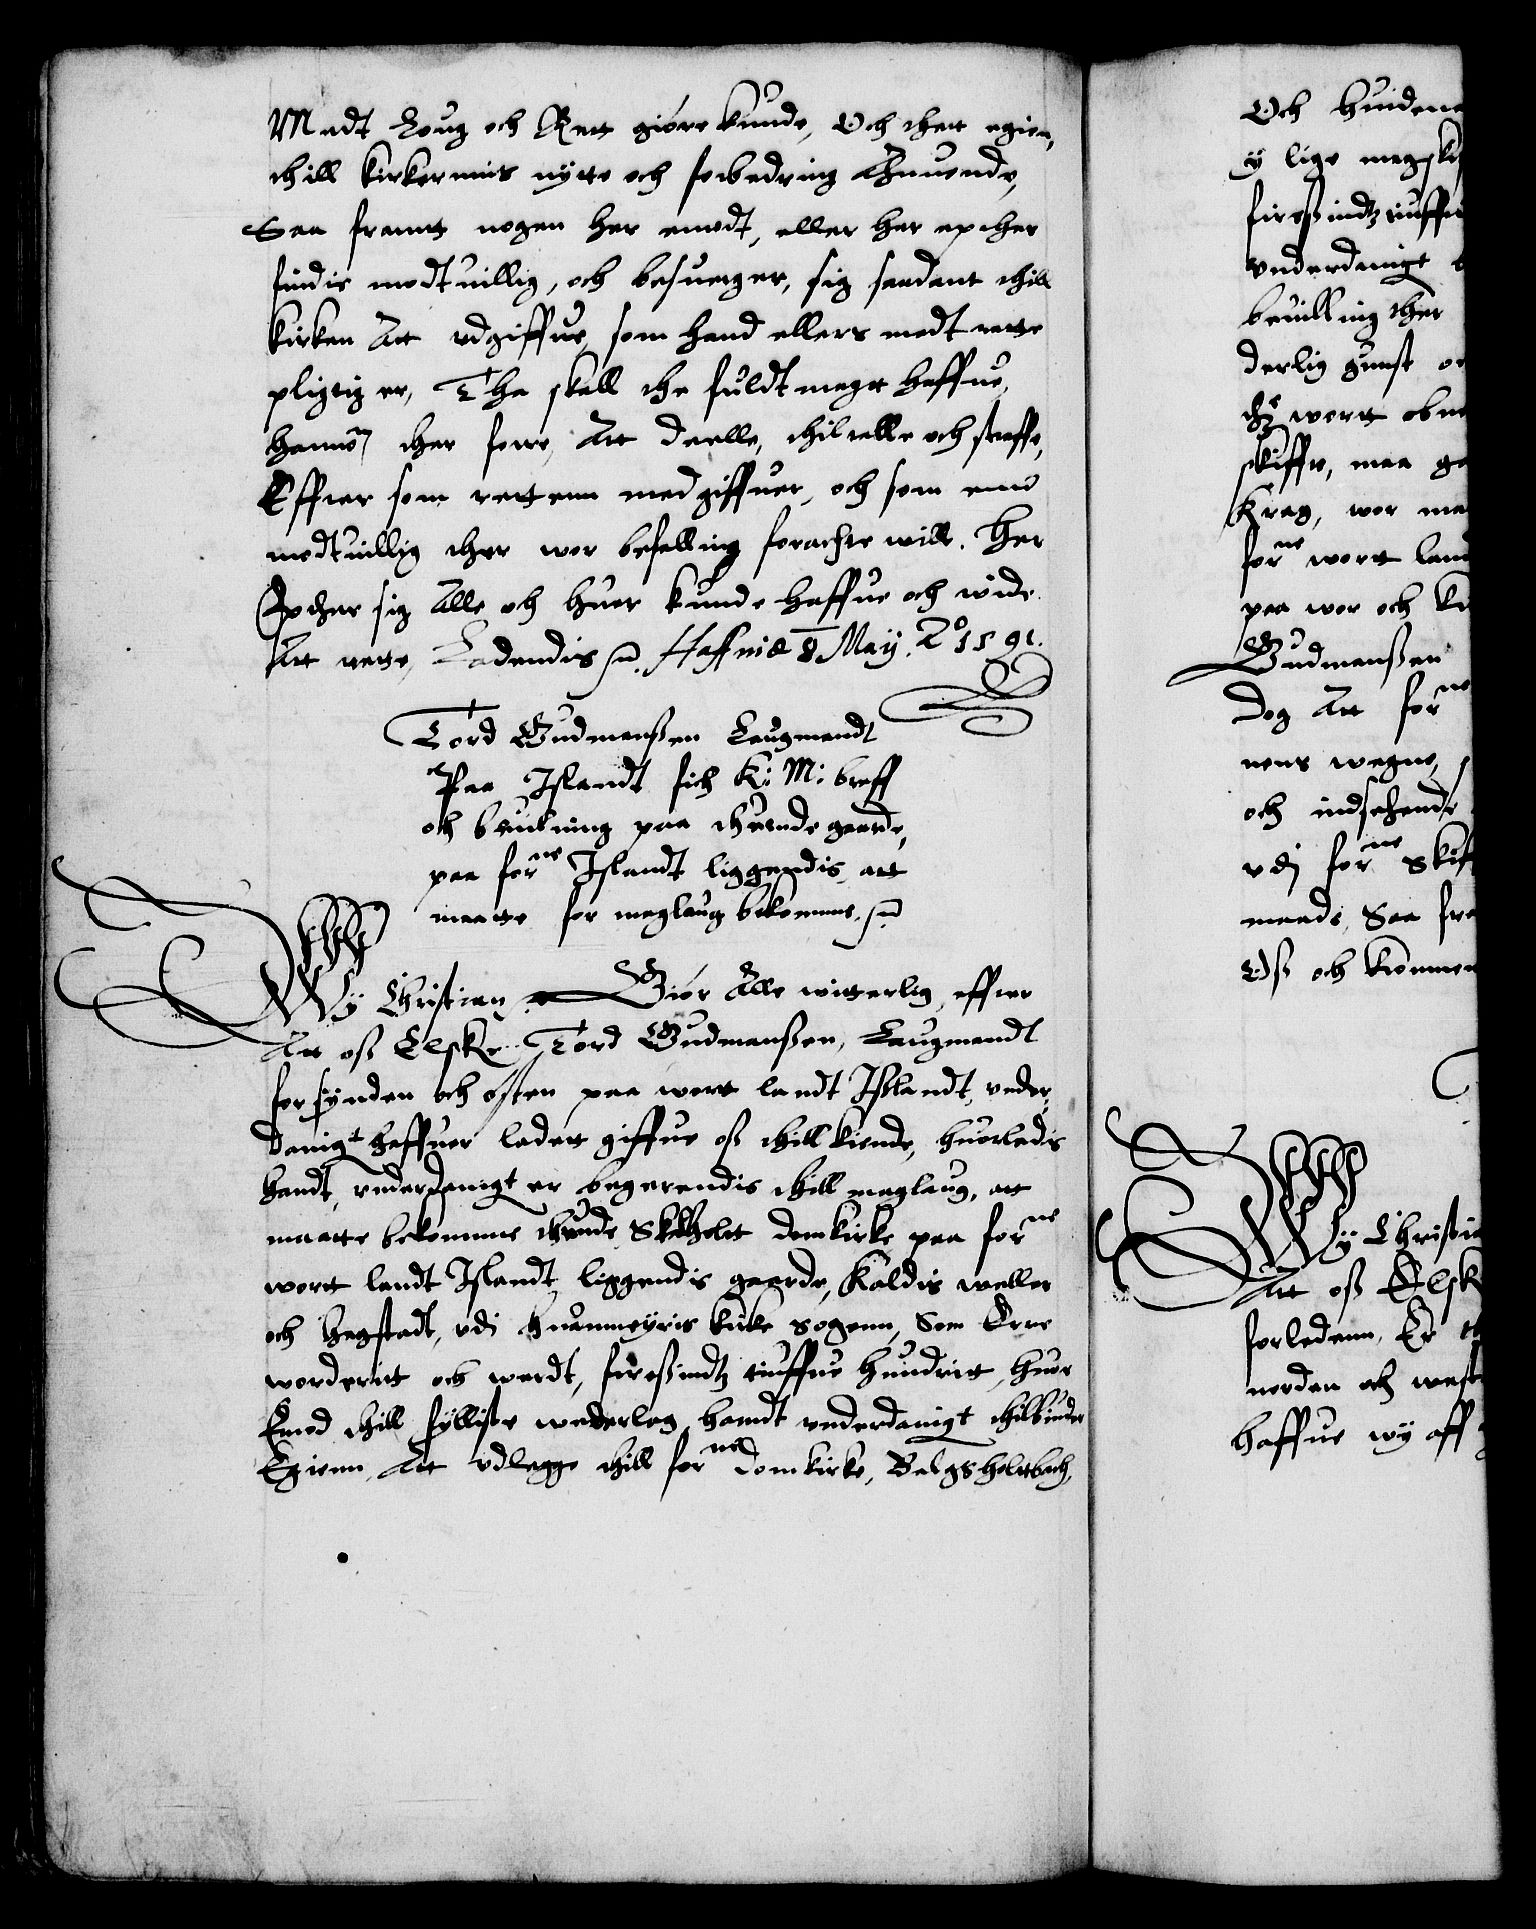 Medt Loug och Rett giøre kunde, Och thett egien,
thill kirkernnis nytte och forbedring Anuende,
Saa framtt nogen her emodt, eller her epther
findis modtuillig, och besuerger, sig saadant thill
kirken Att udgiffue, som hand ellers medt rette
pligtig er, Tha skall the fuldt magtt haffue,
hannom ther fore, Att deelle, thiltalle och straffe,
Effter som rettenn medgiffuer, och som enn
modtuillig ther wor befalling forachte will. Her
Epther sig Alle och huer kunde haffue och wide
Att rette, Ladendis Haffniæ 8 May. Ao 1591.
Tord Gudmanßen Laugmandt
Paa Islandt fich K: M: breff
och beuilning paa thuende gaarde,
paa forne Islandt liggendis att
maatte for maglaug bekomme.
Wy Christian Giør Alle witterlig, effter
Att oß Elske. Tord Gudmanßen, Laugmandt
for synden och østen paa wortt landt Ißlandt, under
danigt haffuer ladett giffue oß thillkiende, huorledis
handt, underdanigt er begerendis thill maglaug, att
maatte bekomme thuende Skalholtt domkirke paa forne
wortt landt Islandt liggendis gaarde, Kaldis weller
och hagstadt, udi huanmeyris kirke sogenn, Som Erre
worderitt och werdt, firesindtz tiuffue hundritt, huor
Emod thill fylliste wederlag handt underdanigt thilbiuder
Egienn Att udlegge thill forne domkirke, Belgsholttbach,
Och huidene
y lige magski
firesindtz tiuffu
underdanigt
beuilling ther
derlig gunst oc
wortt obne
skiffte, maa ga
Krag, wor ma
forne wortt land
paa wor och kr
Gudmanßen
Dog Att forne
nens wegne,
och indseende
udj forne Skift
maade, Saa fra
Oß och kronnen
Wy Christia
Att oß Elsk
forledenn, Er
norden och west
haffue wy aff